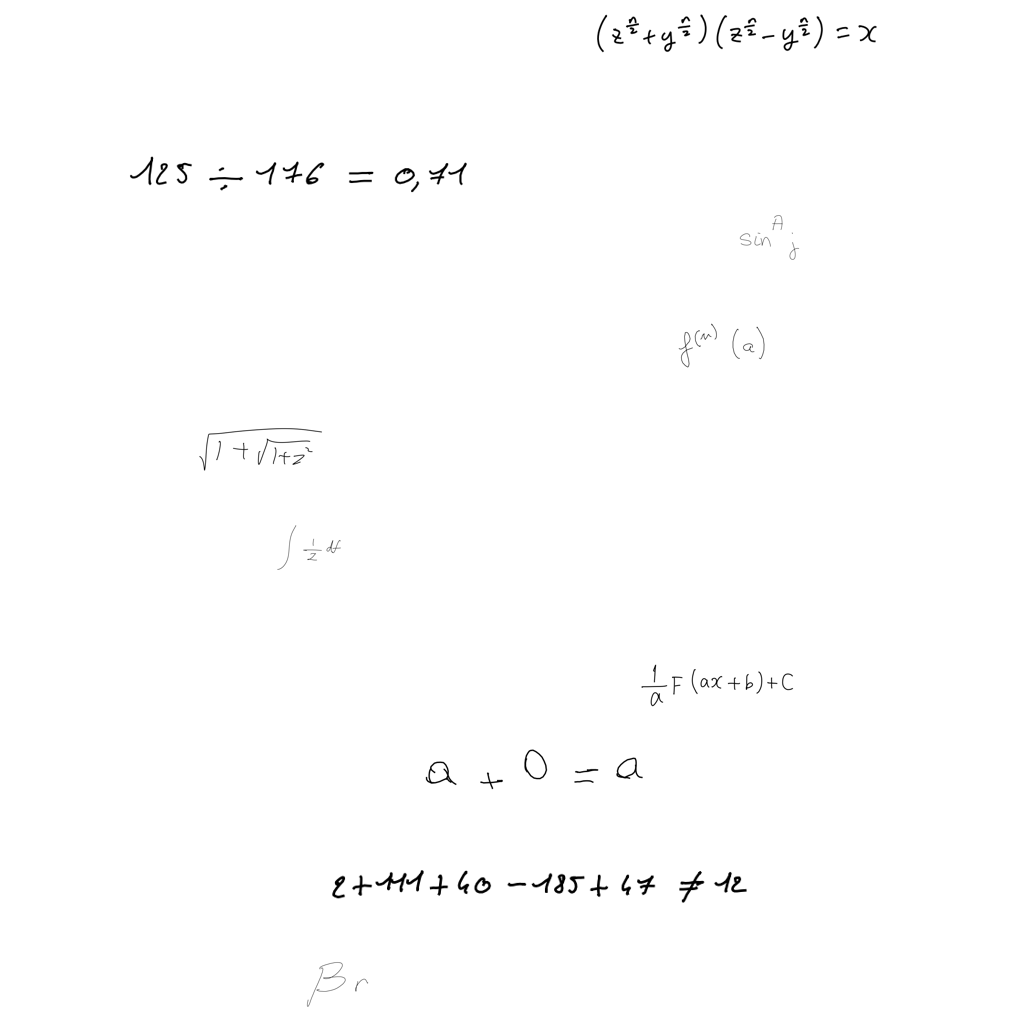 (z^{n/2}+y^{n/2})(z^{n/2}-y^{n/2})=x
125 ÷ 176 = 0,71
sin^A j
f^{(n)}(a)
√(1+√(1+z²))
∫ 1/z dt
1/a F(ax+b)+C
a + 0 = a
2+111+40-185+47 ≠ 12
β r